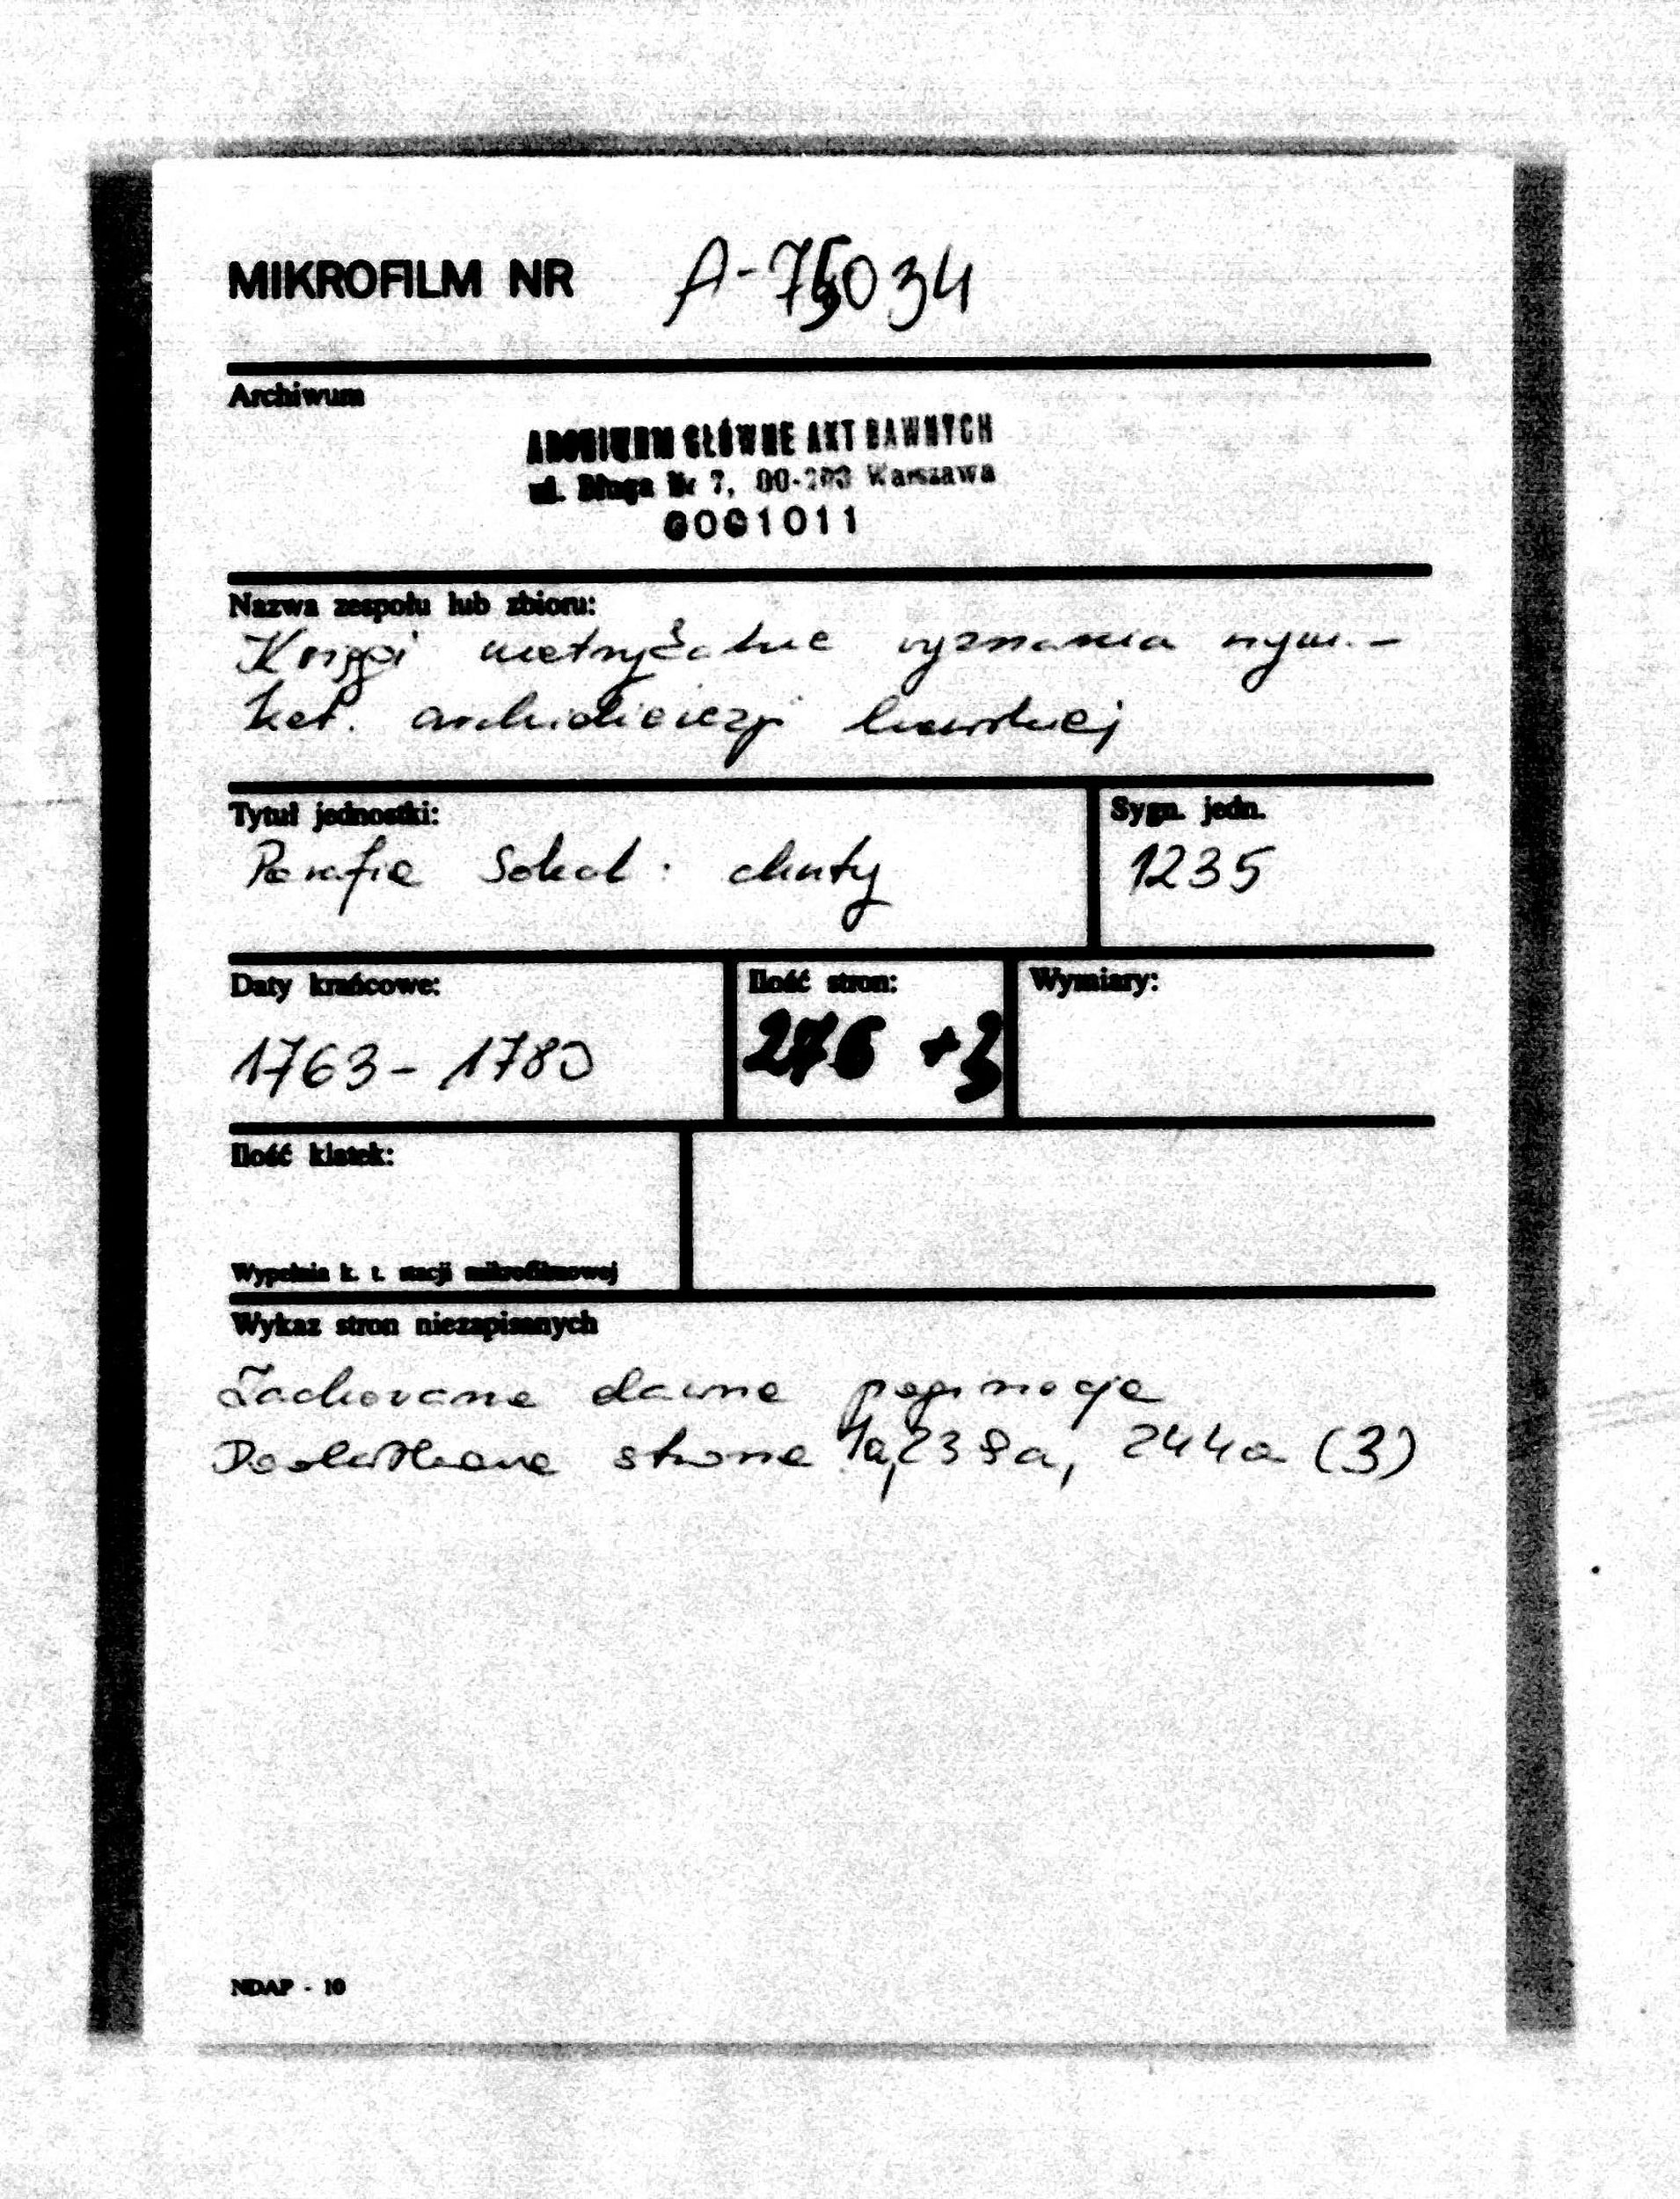 MIKROFILM NR A-75034
Archiwum
ARCHIWUM GŁÓWNE AKT DAWNYCH
ul. Długa Nr 7, 00-263 Warszawa
0001011
Nazwa zespołu lub zbioru:
Księgi metrykalne wyznania rzym.-
kat. archidiecezji lwowskiej
Tytuł jednostki:
Sygn. jedn.
Parafia Sokal: chrzty
1235
Daty krańcowe:
Ilość stron:
Wymiary:
1763 - 1780
276 +3
Ilość klatek:
Wypełnia k. t. stacji mikrofilmowej
Wykaz stron niezapisanych
Zachowana dawna paginacja
Dodatkowe strone 1a, 238a, 244a (3)
NDAP - 10